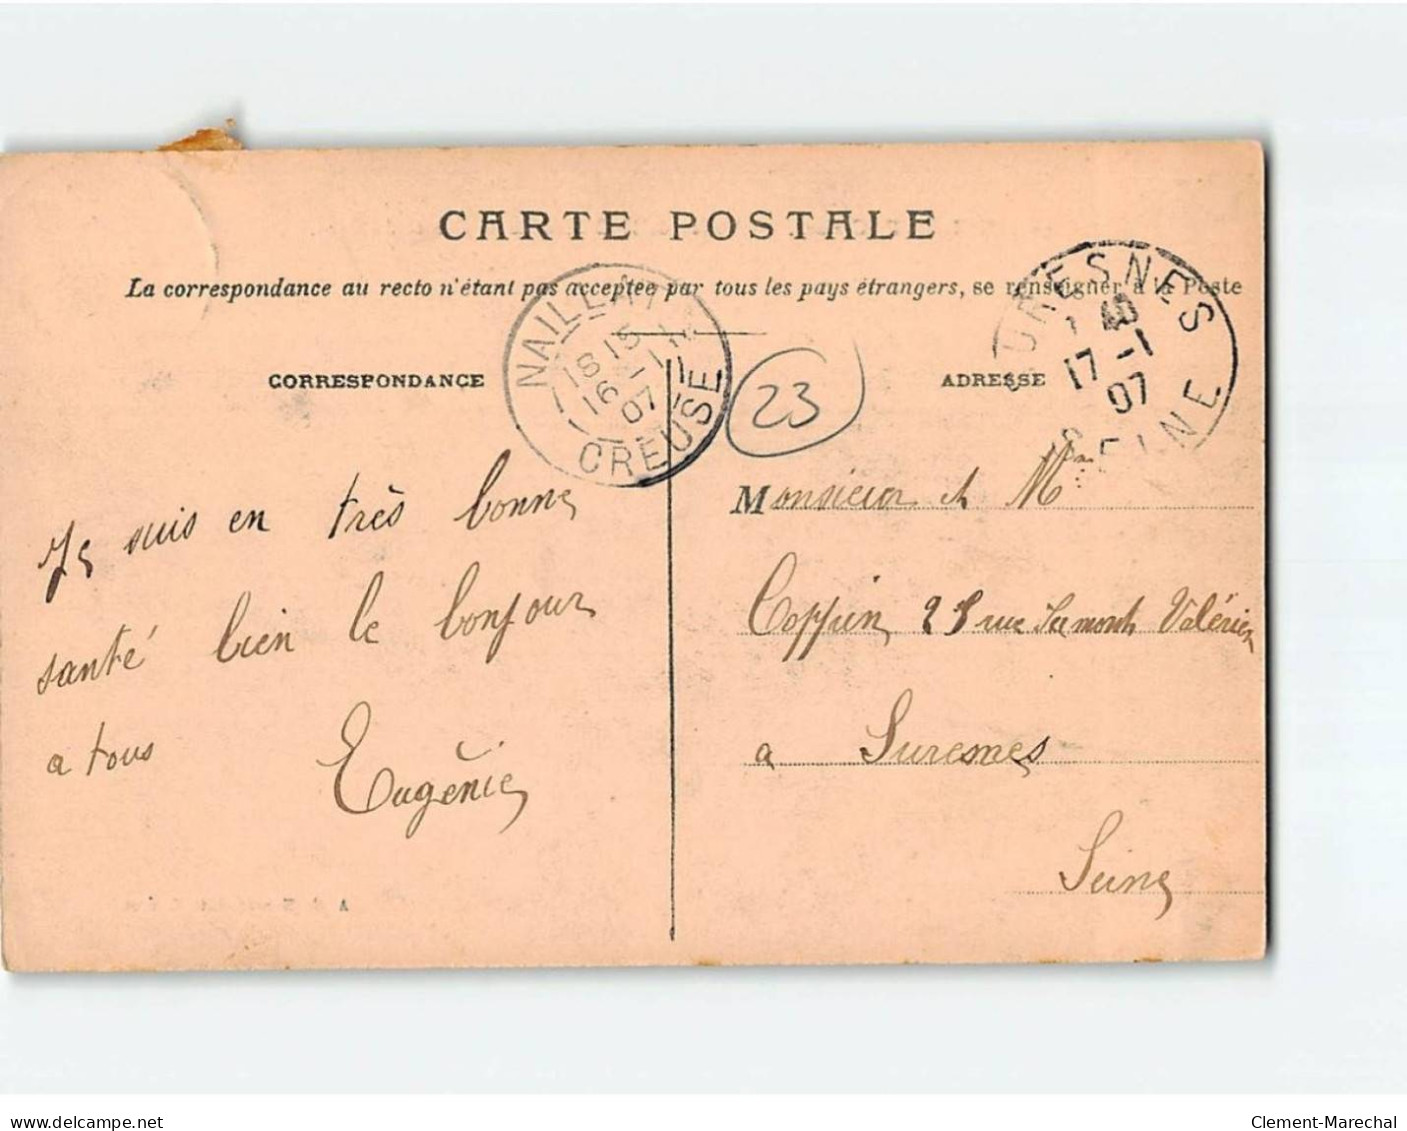 CARTE POSTALE
La correspondance au recto n'étant pas acceptée par tous les pays étrangers, se renseigner à la Poste
CORRESPONDANCE
ADRESSE
NAILLAT
18 15
16 -1
07
CREUSE
23
SURESNES
17 -1
07
SEINE
Je suis en très bonne
santé bien le bonjour
a tous
Eugènie
Monsieur et Mme
Coppin rue Valérien
a Suresnes
Seine
www.delcampe.net
Clement-Marechal